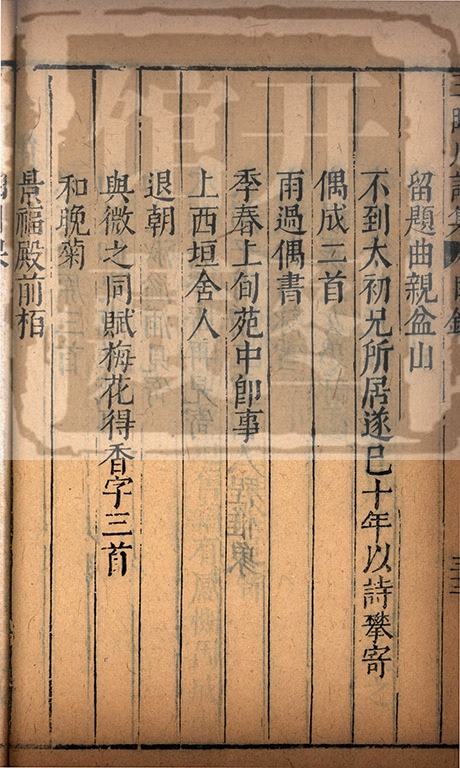 留題曲親盆山
不到太初兄所居遂已十年以詩攀寄
偶成二首
雨過偶書
季春上旬苑中卽事
上西垣舍人
退朝
與微之同賦梅花得香字三首
和晚菊
景福殿前栢